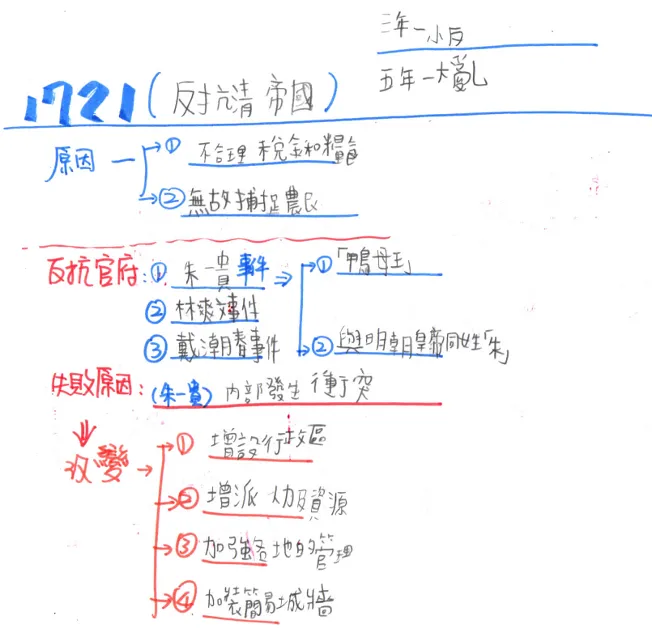 三年一小反
五年一大亂
1721(反抗清帝國)
原因 → ① 不合理稅金和糧食
→ ② 無故捕捉農民
反抗官府:① 朱一貴事件 → ① 「鴨母王」
② 林爽文事件
③ 戴潮春事件 → ② 與明朝皇帝同姓「朱」
失敗原因:(朱一貴) 內部發生衝突
⇓
改變 → ① 增設行政區
→ ② 增派人力及資源
→ ③ 加強各地的管理
→ ④ 加裝簡易城牆